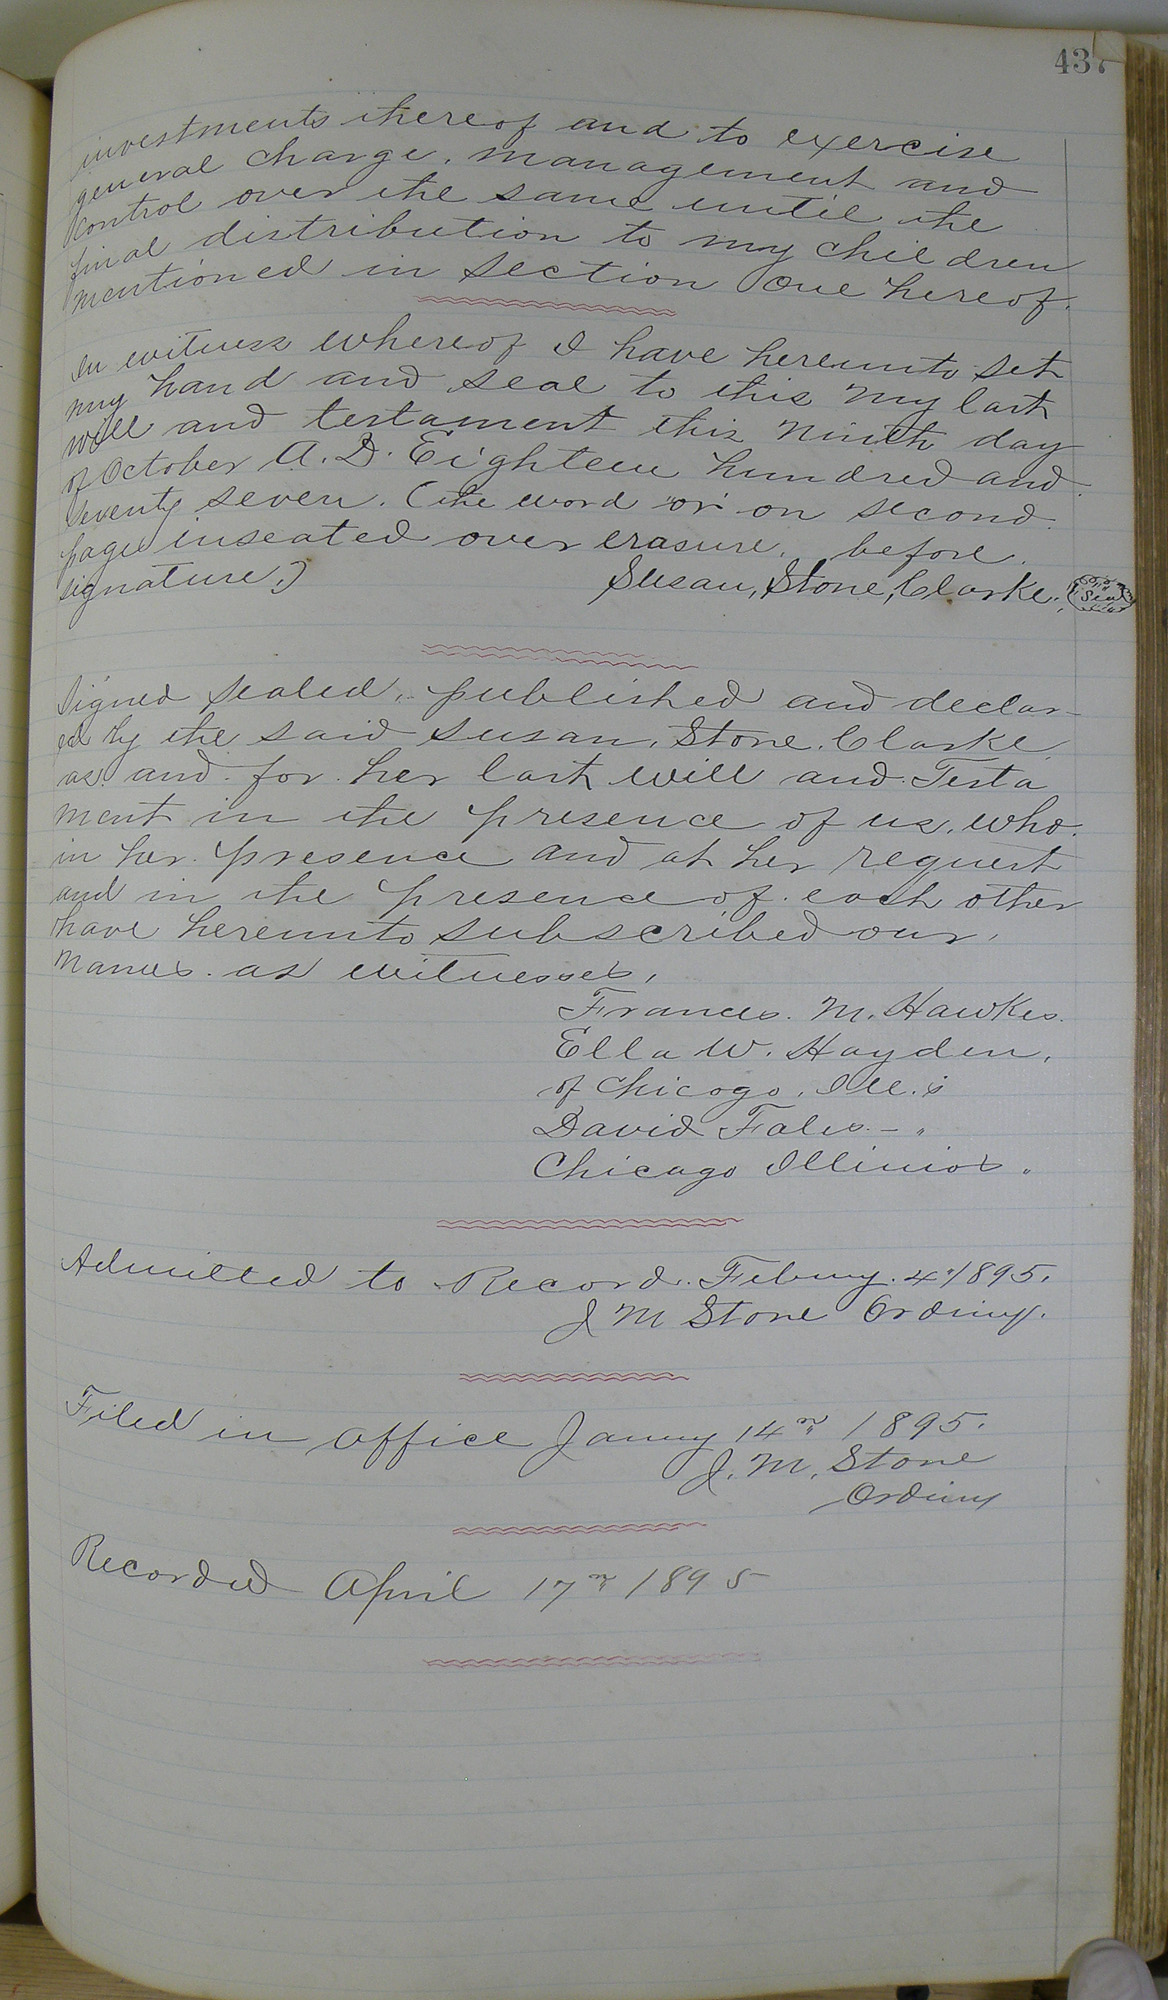 437
investments thereof and to exercise
general charge, management and
control over the same until the
final distribution to my children
mentioned in section One hereof.
In witness whereof I have hereunto set
my hand and seal to this my last
will and testament this Ninth day
of October A. D. Eighteen hundred and
seventy seven. (the word "or" on second
page inseated over erasure, before
signature.)
Susan, Stone, Clarke. (Seal)
Signed sealed, published and declar-
ed by the said Susan, Stone, Clarke
as and for her last will and Testa
ment in the presence of us, who
in her presence and at her request
and in the presence of each other
have hereunto subscribed our,
names as witnesses,
Frances. M. Hawkes.
Ella W. Hayden,
of Chicogo, Ill.s
David Fales - "
Chicago Illinios.
Admitted to Record. Febuuy. 4" 1895.
J M Stone Ordiuy.
Filed in office Januy 14th 1895.
J. M. Stone
Ordiuy
Recorded April 17th 1895